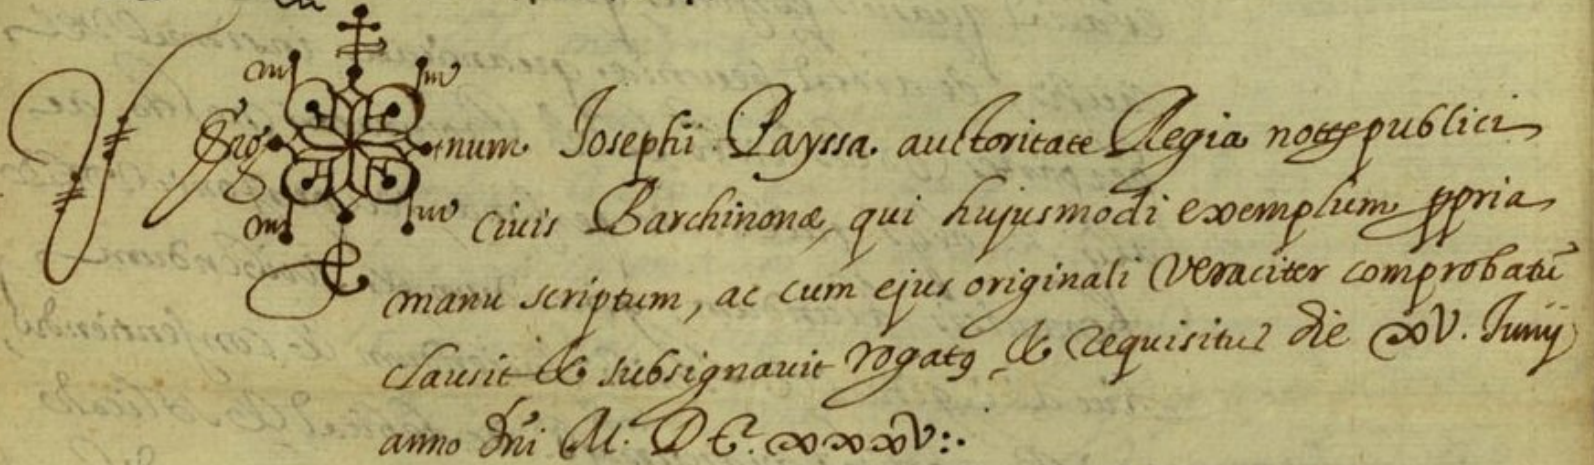 Sig num Josephi Payssa. auctoritate Regia nottz publici
Civis Barchinonæ, qui hujusmodi exemplum ppria
manu scriptum, ac cum ejus originali veraciter comprobatū
clausit & subsignavit rogatꝰ & requisitus die xv. Junij
anno dn̄i M. D C. xxxv:.